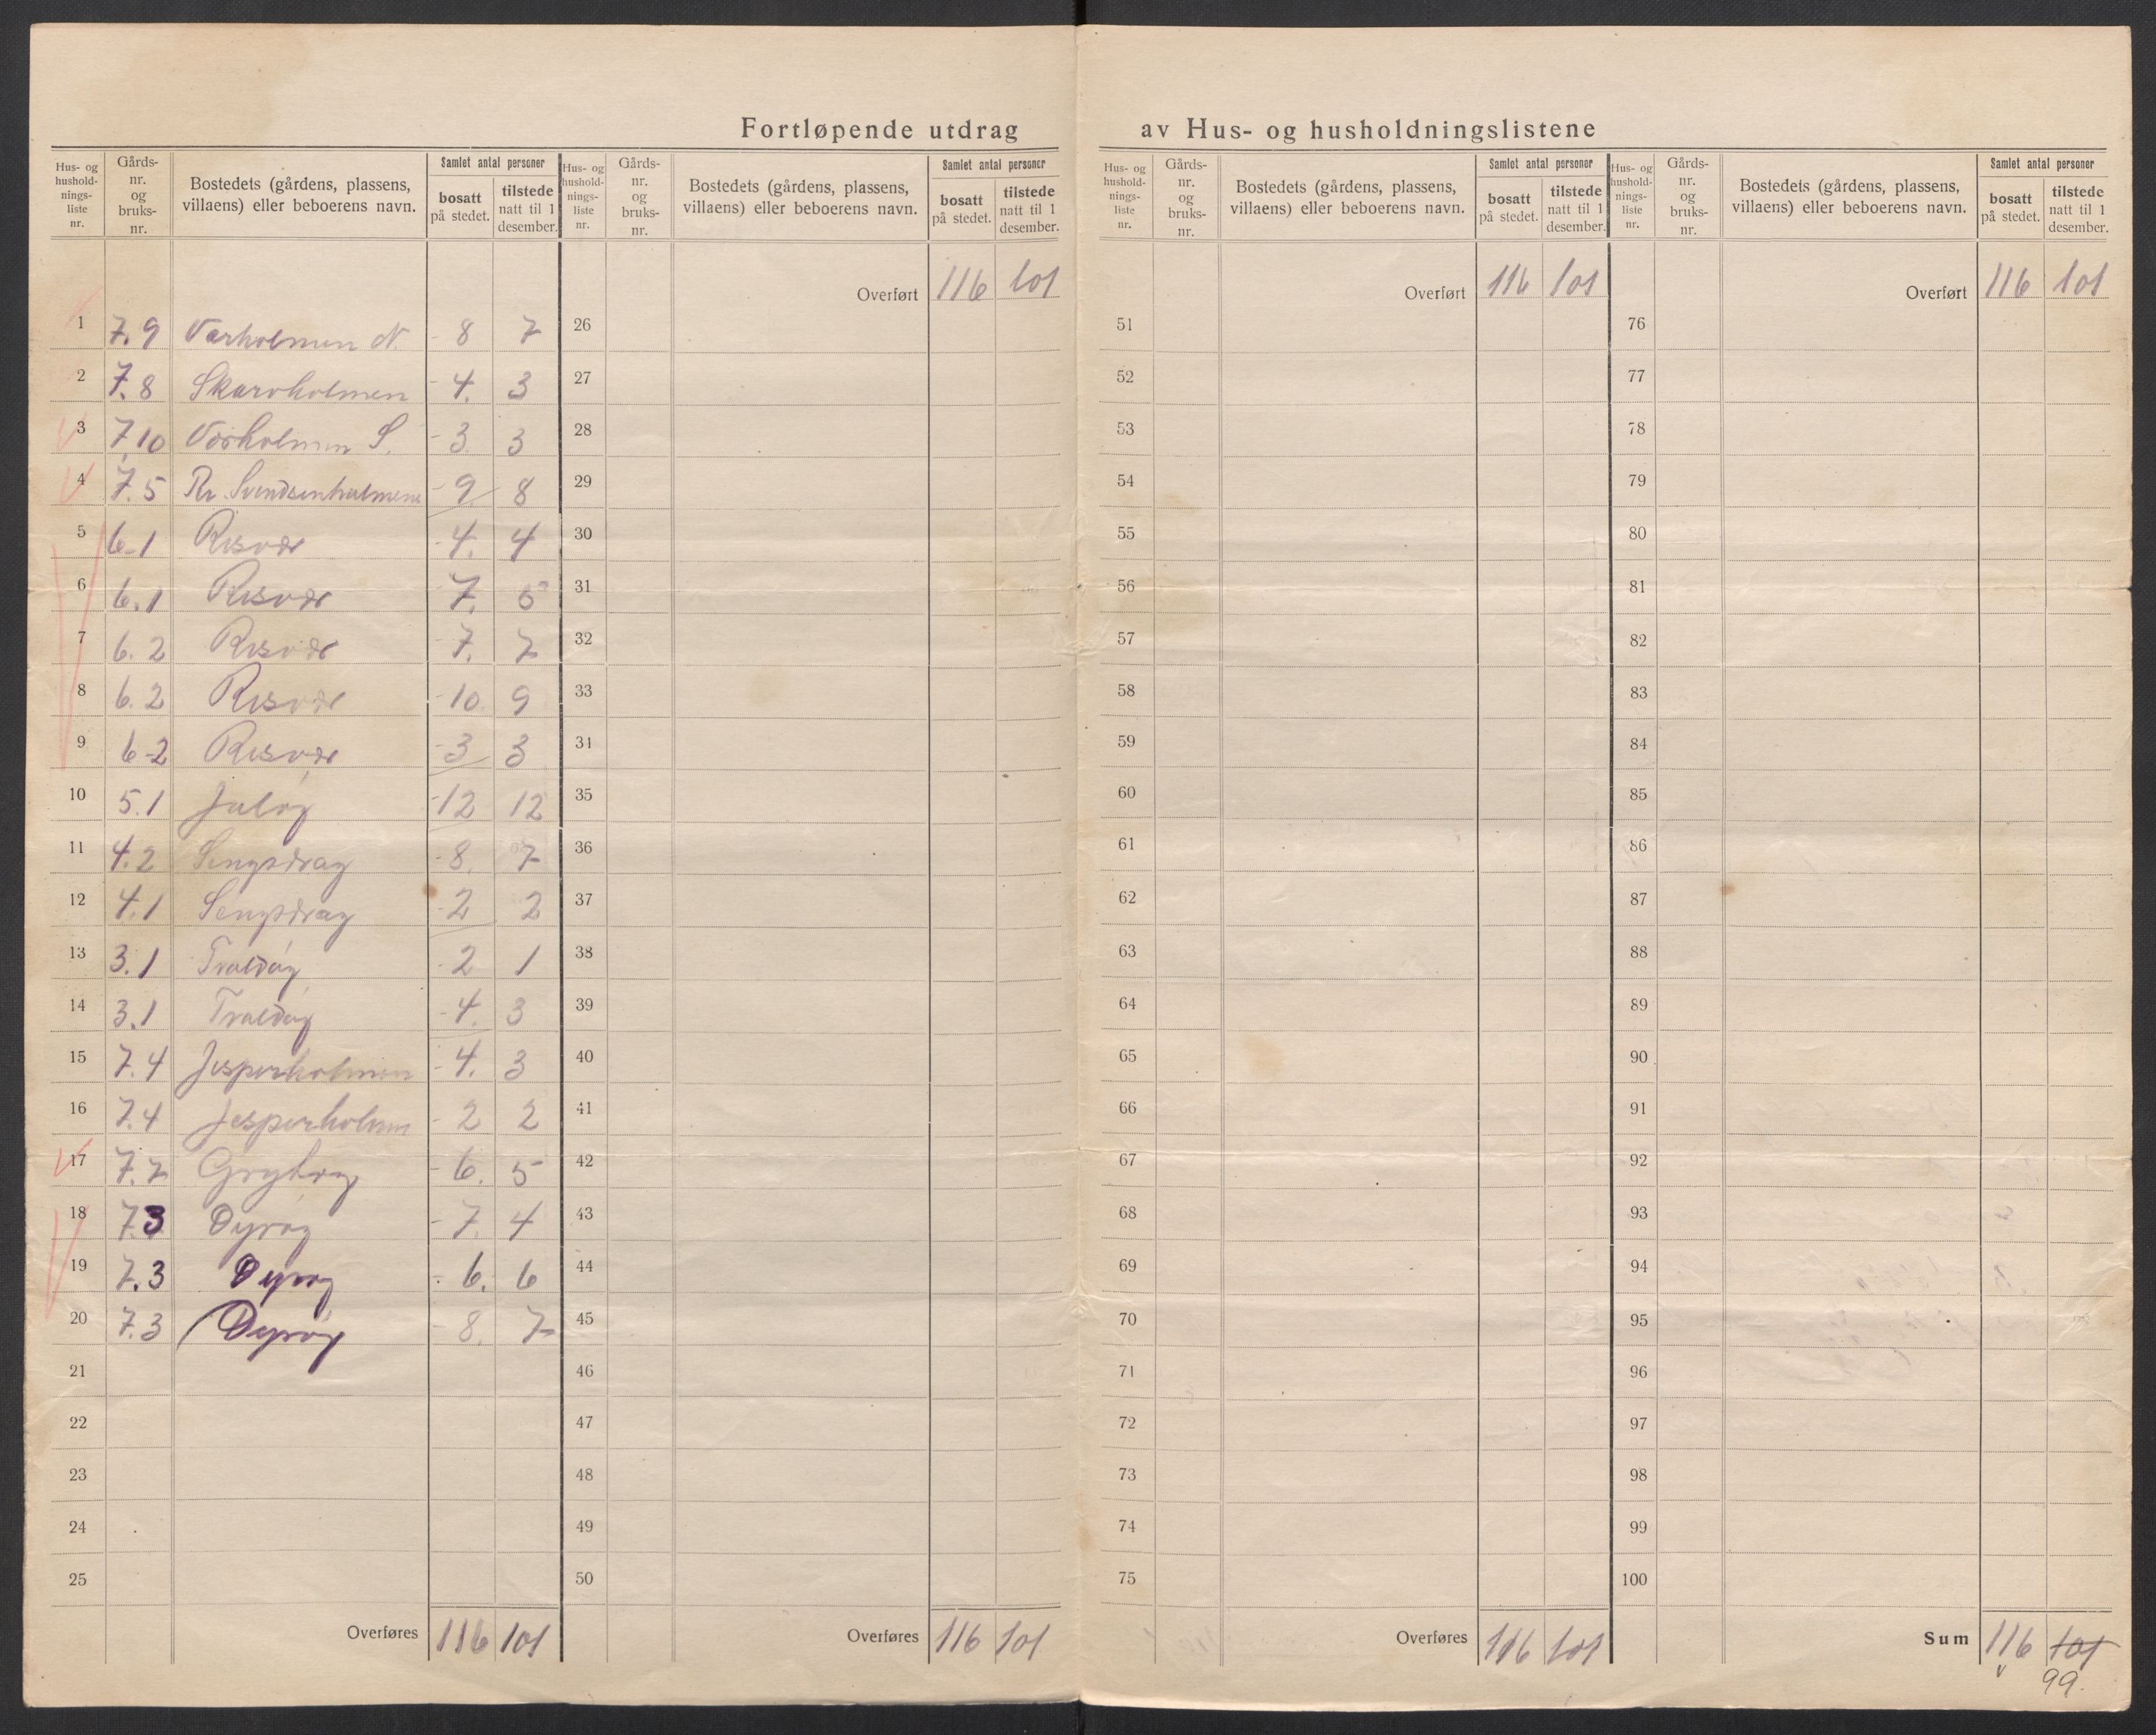 Fortløpende utdrag av Hus- og husholdningslistene
Hus- og hushold-nings-liste nr. | Gårds-nr. og bruks-nr. | Bostedets (gårdens, plassens, villaens) eller beboerens navn. | Samlet antal personer | bosatt på stedet. | tilstede natt til 1 desember.
1 7.9 Værholmen N. - 8 7
2 7.8 Skarvholmen - 4. 3
3 7.10 Værholmen S. - 3. 3
4 7.5 Rr. Svendsenholmene - 9 8
5 6.1 Risvær - 4. 4
6 6.1 Risvær 7.
7 6.2 Risvær - 7. 7
8 6.2 Risvær - 10. 9
9 6.2 Risvær - 3 3
10 5.1 Juløy - 12 12
11 4.2 Sengsdrag - 8. 7
12 4.1 Sengsdrag - 2 2
13 3.1 Traldøy - 2 1
14 3.1 Traldøy - 4. 3
15 7.4 Jesperholmen - 4. 3
16 7.4 Jesperholmen - 2 2
17 7. - 6. 5
18 7.3 Dyrøy - 7. 4
19 7.3 Dyrøy - 6. 6
20 7.3 Dyrøy - 8. 7
21
22
23
24
25
Overføres 116 101
Hus- og hushold-nings-liste nr. | Gårds-nr. og bruks-nr. | Bostedets (gårdens, plassens, villaens) eller beboerens navn. | Samlet antal personer | bosatt på stedet. | tilstede natt til 1 desember.
Overført 116 101
26
27
28
29
30
31
32
33
34
35
36
37
38
39
40
41
42
43
44
45
46
47
48
49
50
Overføres 116 101
Hus- og hushold-nings-liste nr. | Gårds-nr. og bruks-nr. | Bostedets (gårdens, plassens, villaens) eller beboerens navn. | Samlet antal personer | bosatt på stedet. | tilstede natt til 1 desember.
Overført 116 101
51
52
53
54
55
56
57
58
59
60
61
62
63
64
65
66
67
68
69
70
71
72
73
74
75
Overføres 116 101
Hus- og hushold-nings-liste nr. | Gårds-nr. og bruks-nr. | Bostedets (gårdens, plassens, villaens) eller beboerens navn. | Samlet antal personer | bosatt på stedet. | tilstede natt til 1 desember.
Overført 116 101
76
77
78
79
80
81
82
83
84
85
86
87
88
89
90
91
92
93
94
95
96
97
98
99
100
Sum 116 101
99.